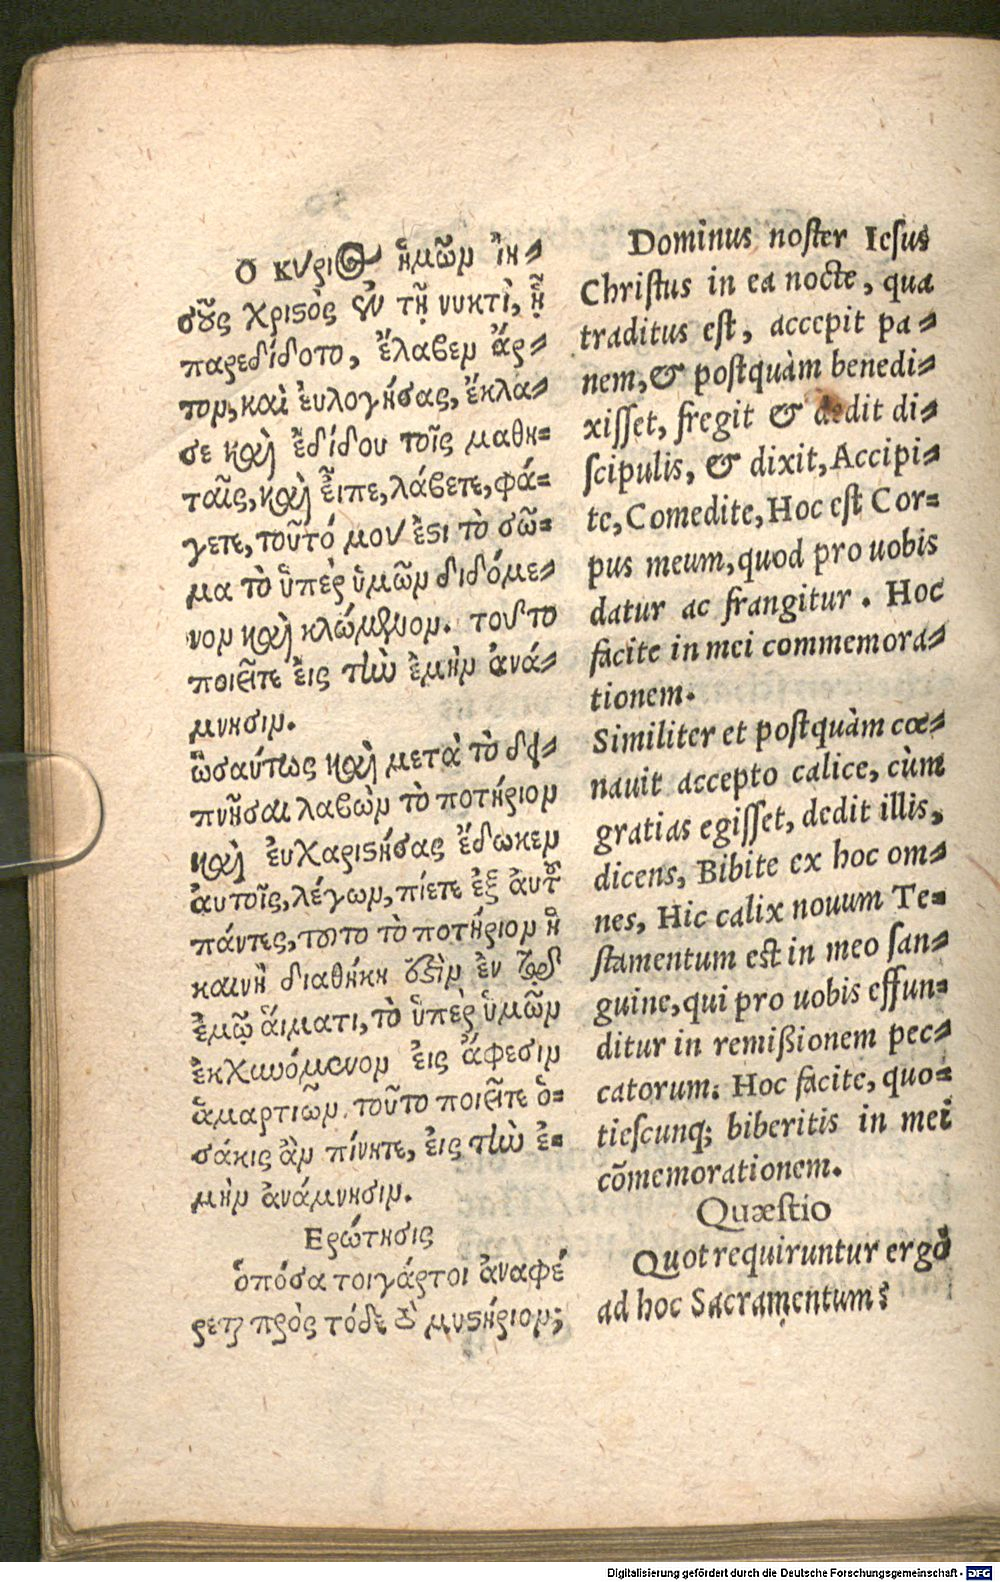 Ο κύριος ἡμῶν ἰη-
σοῦς χριστὸς ἐν τῇ νυκτὶ, ᾗ
παρεδίδοτο, ἔλαβεν ἄρ-
τον, καὶ ἐυλογήσας, ἔκλα-
σε καὶ ἐδίδου τοῖς μαθη-
ταῖς, καὶ ἐῖπε, λάβετε, φά-
γετε, τοῦτό μου ἐστι τὸ σῶ-
μα τὸ ὑπὲρ ὑμῶν διδόμε-
νον καὶ κλώμενον. τοῦτο
ποιεῖτε ἐις τὴν ἐμὴν ἀνά-
μνησιν.
ὡσαύτως καὶ μετὰ τὸ δει-
πνῆσαι λαβὼν τὸ ποτήριον
καὶ ἐυχαριστήσας ἔδωκεν
ἀυτοῖς, λέγων, πίετε ἐξ ἀυτοῦ
πάντες, τοῦτο τὸ ποτήριον ἡ
καινὴ διαθήκη ἐστὶν ἐν
ἐμῷ ἅιματι, τὸ ὑπὲρ ὑμῶν
ἐκχυνόμενον ἐις ἄφεσιν
ἁμαρτιῶν. τοῦτο ποιεῖτε ὁ-
σάκις ἂν πίνητε, ἐις τὴν ἐ-
μὴν ἀνάμνησιν.
Ερώτησις
ὁπόσα τοιγάρτοι ἀναφέ
ρεται πρὸς τόδε τὸ μυστήριον;
Dominus noster Iesus
Christus in ea nocte, qua
traditus est, accepit pa-
nem, & postquàm benedi-
xisset, fregit & dedit di-
scipulis, & dixit, Accipi-
te, Comedite, Hoc est Cor-
pus meum, quod pro uobis
datur ac frangitur. Hoc
facite in mei commemora-
tionem.
Similiter et postquàm cœ-
nauit accepto calice, cùm
gratias egisset, dedit illis,
dicens, Bibite ex hoc om-
nes, Hic calix nouum Te-
stamentum est in meo san-
guine, qui pro uobis effun-
ditur in remißionem pec-
catorum: Hoc facite, quo-
tiescunq; biberitis in mei
cõmemorationem.
Quæstio
Quot requiruntur ergo
ad hoc Sacramentum?
Digitalisierung gefördert durch die Deutsche Forschungsgemeinschaft - DFG